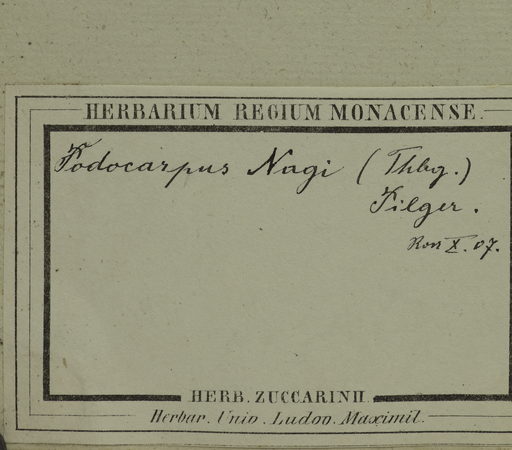 HERBARIUM REGIUM MONACENSE.
Podocarpus Nagi (Thbg.)
Pilger.
X. 07.
HERB. ZUCCARINII.
Herbar. Univ. Ludov. Maximil.